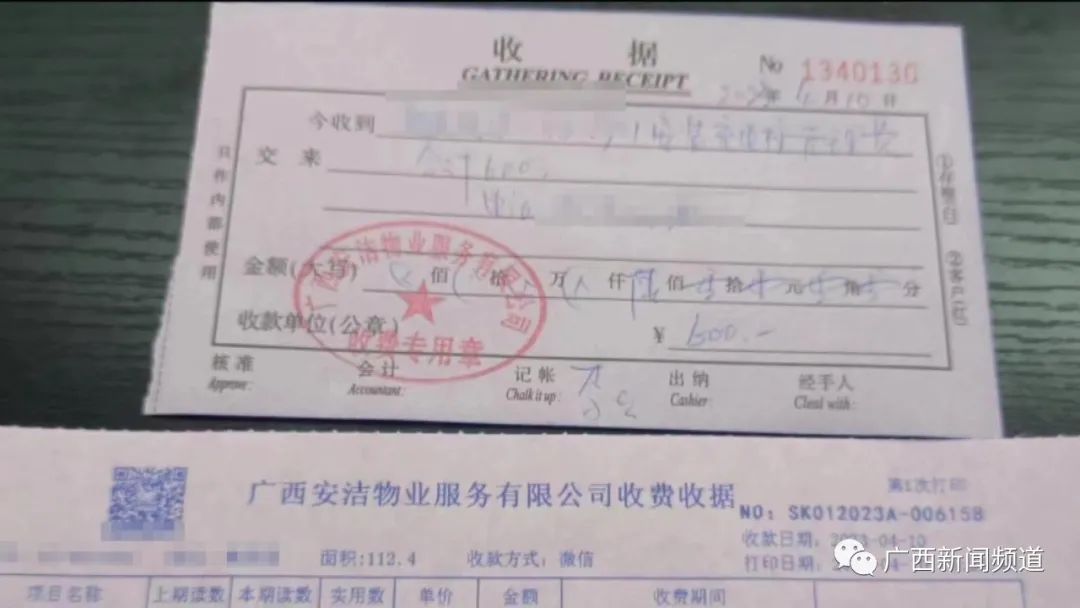 收 据
GATHERING RECEIPT
No 1340130
年 月 10 日
今收到
交 来
合计600.
只作内部使用
①存根(白) ②客户(红)
金额(大写) 佰 拾 万 仟 陆 佰 拾 元 角 分
收款单位(公章)
¥ 600.-
广西安洁物业服务有限公司
收费专用章
核 准 会 计 记 帐 出 纳 经手人
Approve: Accountant: Chalk it up: Cashier: Cleal with:
广西安洁物业服务有限公司收费收据
第1次打印
NO: SK012023A-006158
收款日期: 2023-04-10
面积:112.4 收款方式: 微信
打印日期:
项目名称 上期读数 本期读数 实用数 单价 金额 收费期间
广西新闻频道